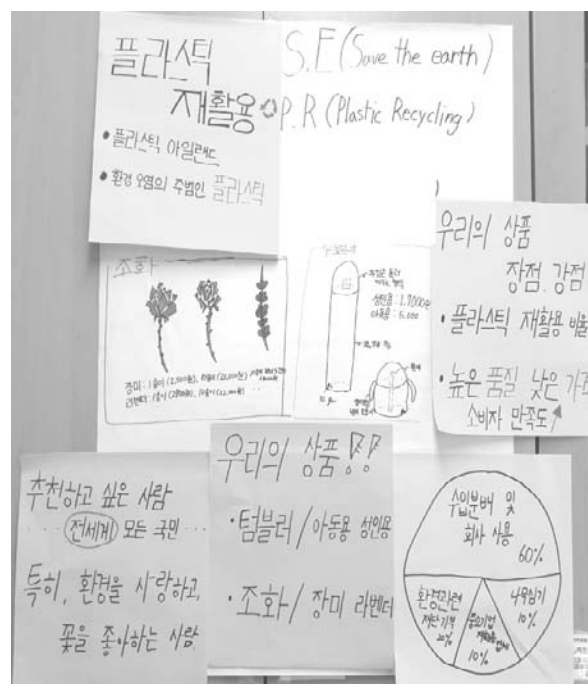 플라스틱
재활용
• 플라스틱 아일랜드
• 환경 오염의 주범인 플라스틱
S.E (Save the earth)
P.R (Plastic Recycling)
조화
장미: 1송이 (2,500원),
성인용:
아동용: 5,000
우리의 상품
장점, 강점
• 플라스틱 재활용 비율
• 높은 품질 낮은 가격
소비자 만족도
추천하고 싶은 사람
전세계 모든 국민
특히, 환경을 사랑하고,
꽃을 좋아하는 사람.
우리의 상품!!
• 텀블러/아동용 성인용
• 조화/장미 라벤더
수입분배 및
회사 사용
60%
환경관련
재단 기부
20%
10%
나무심기
10%